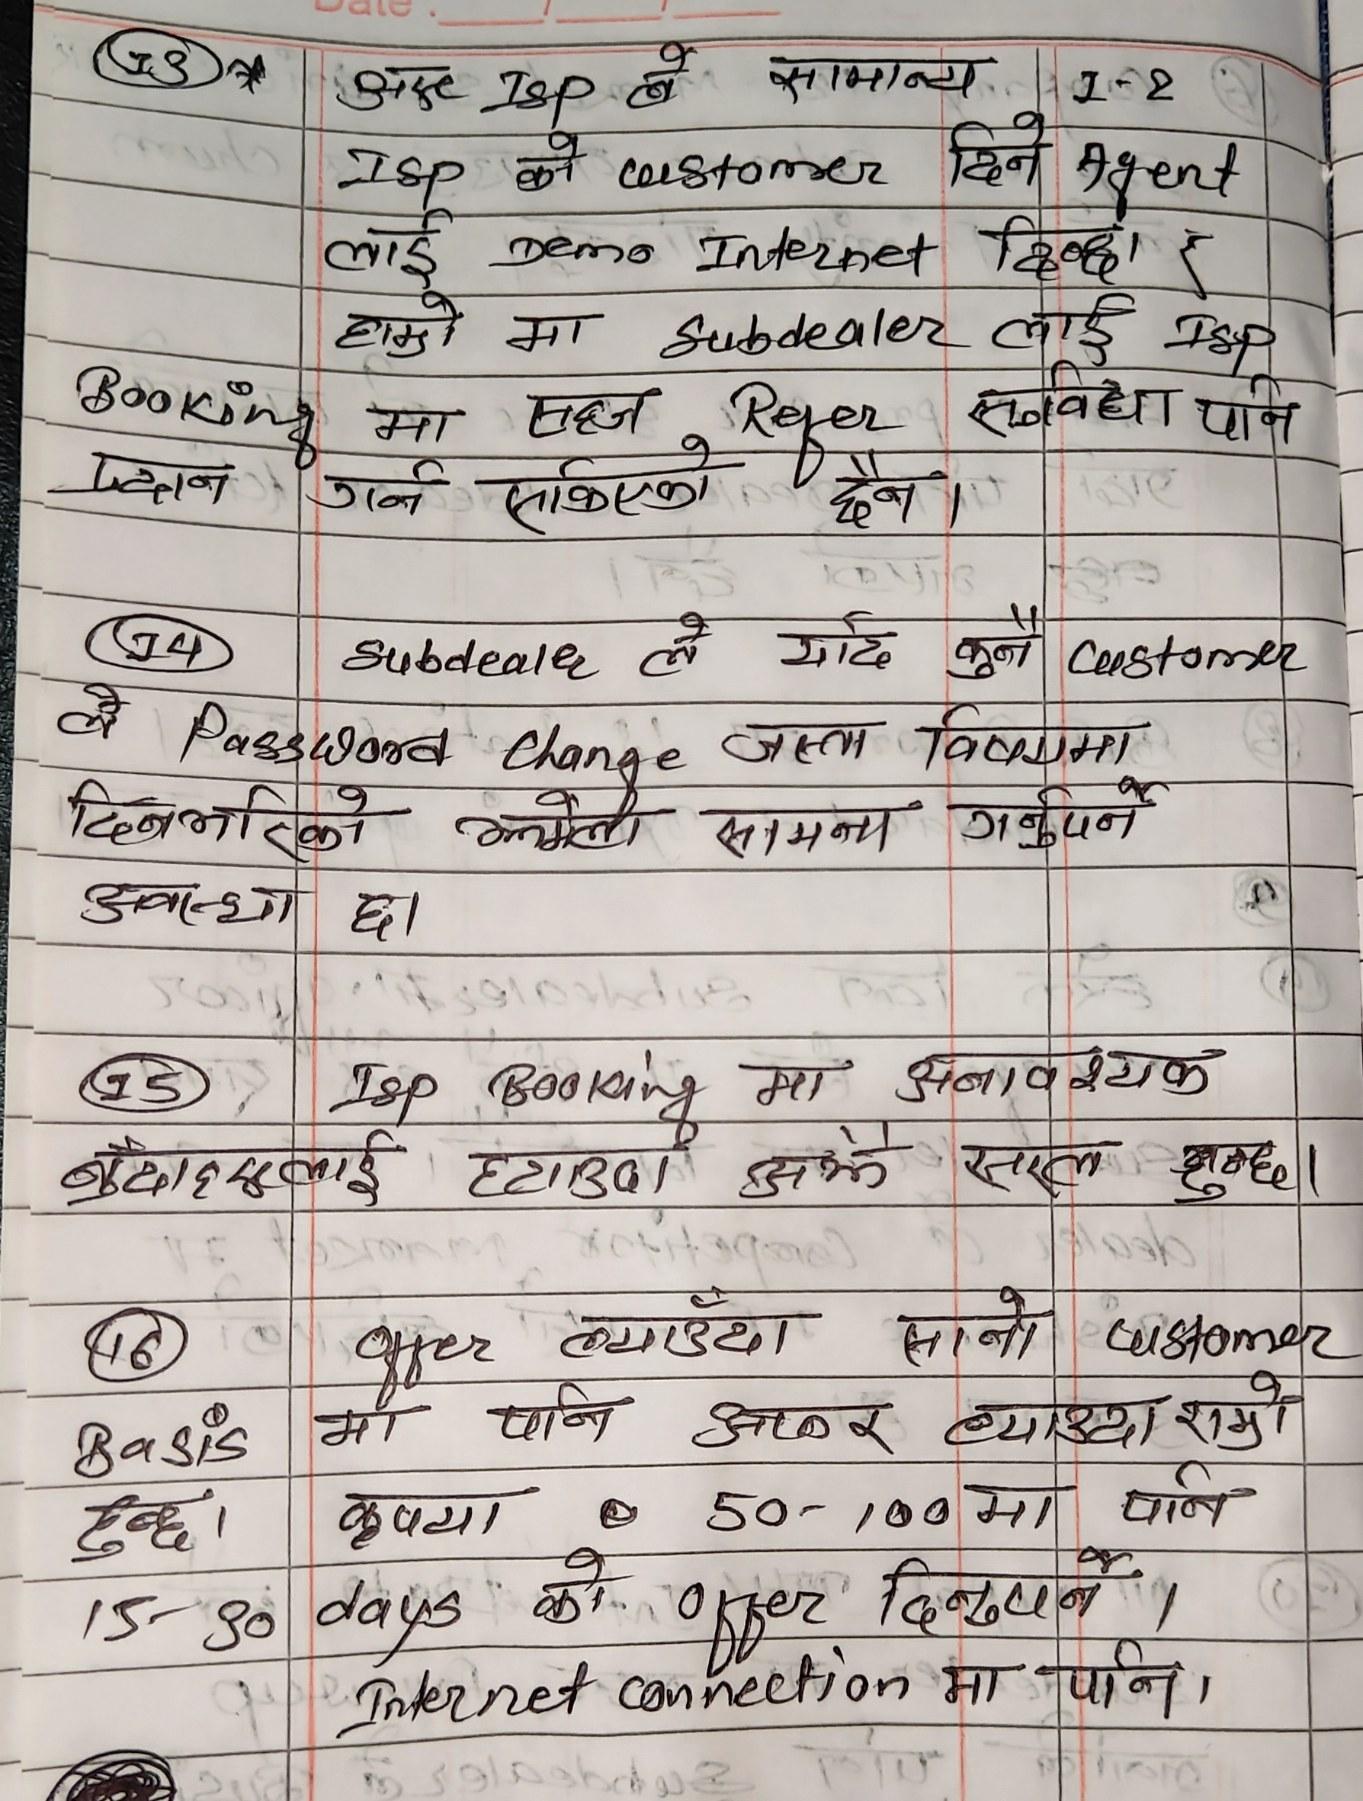 Date : ___/___/___
13 * अरु Isp ले सामान्य 1-2
Isp को customer दिने Agent
लाई Demo Internet दिन्छ। र
हाम्रो मा Subdealer लाई Isp
Booking मा सहज Refer सुविधा पनि
प्रदान गर्न सकिएको छैन।
14 Subdealer ले यदि कुनै customer
ले Password Change जस्ता विषयमा
दिनभरिको झमेला सामना गर्नुपर्ने
अवस्था छ।
15 Isp Booking मा अनावश्यक
बुँदाहरुलाई हटाउदा अझै सरल हुन्छ।
16 Offer ल्याउँदा सानो customer
Basis मा पनि अफर ल्याउदा राम्रो
हुन्छ। कृपया 50-100 मा पनि
15-30 days को Offer दिनुपर्ने।
Internet connection मा पनि।